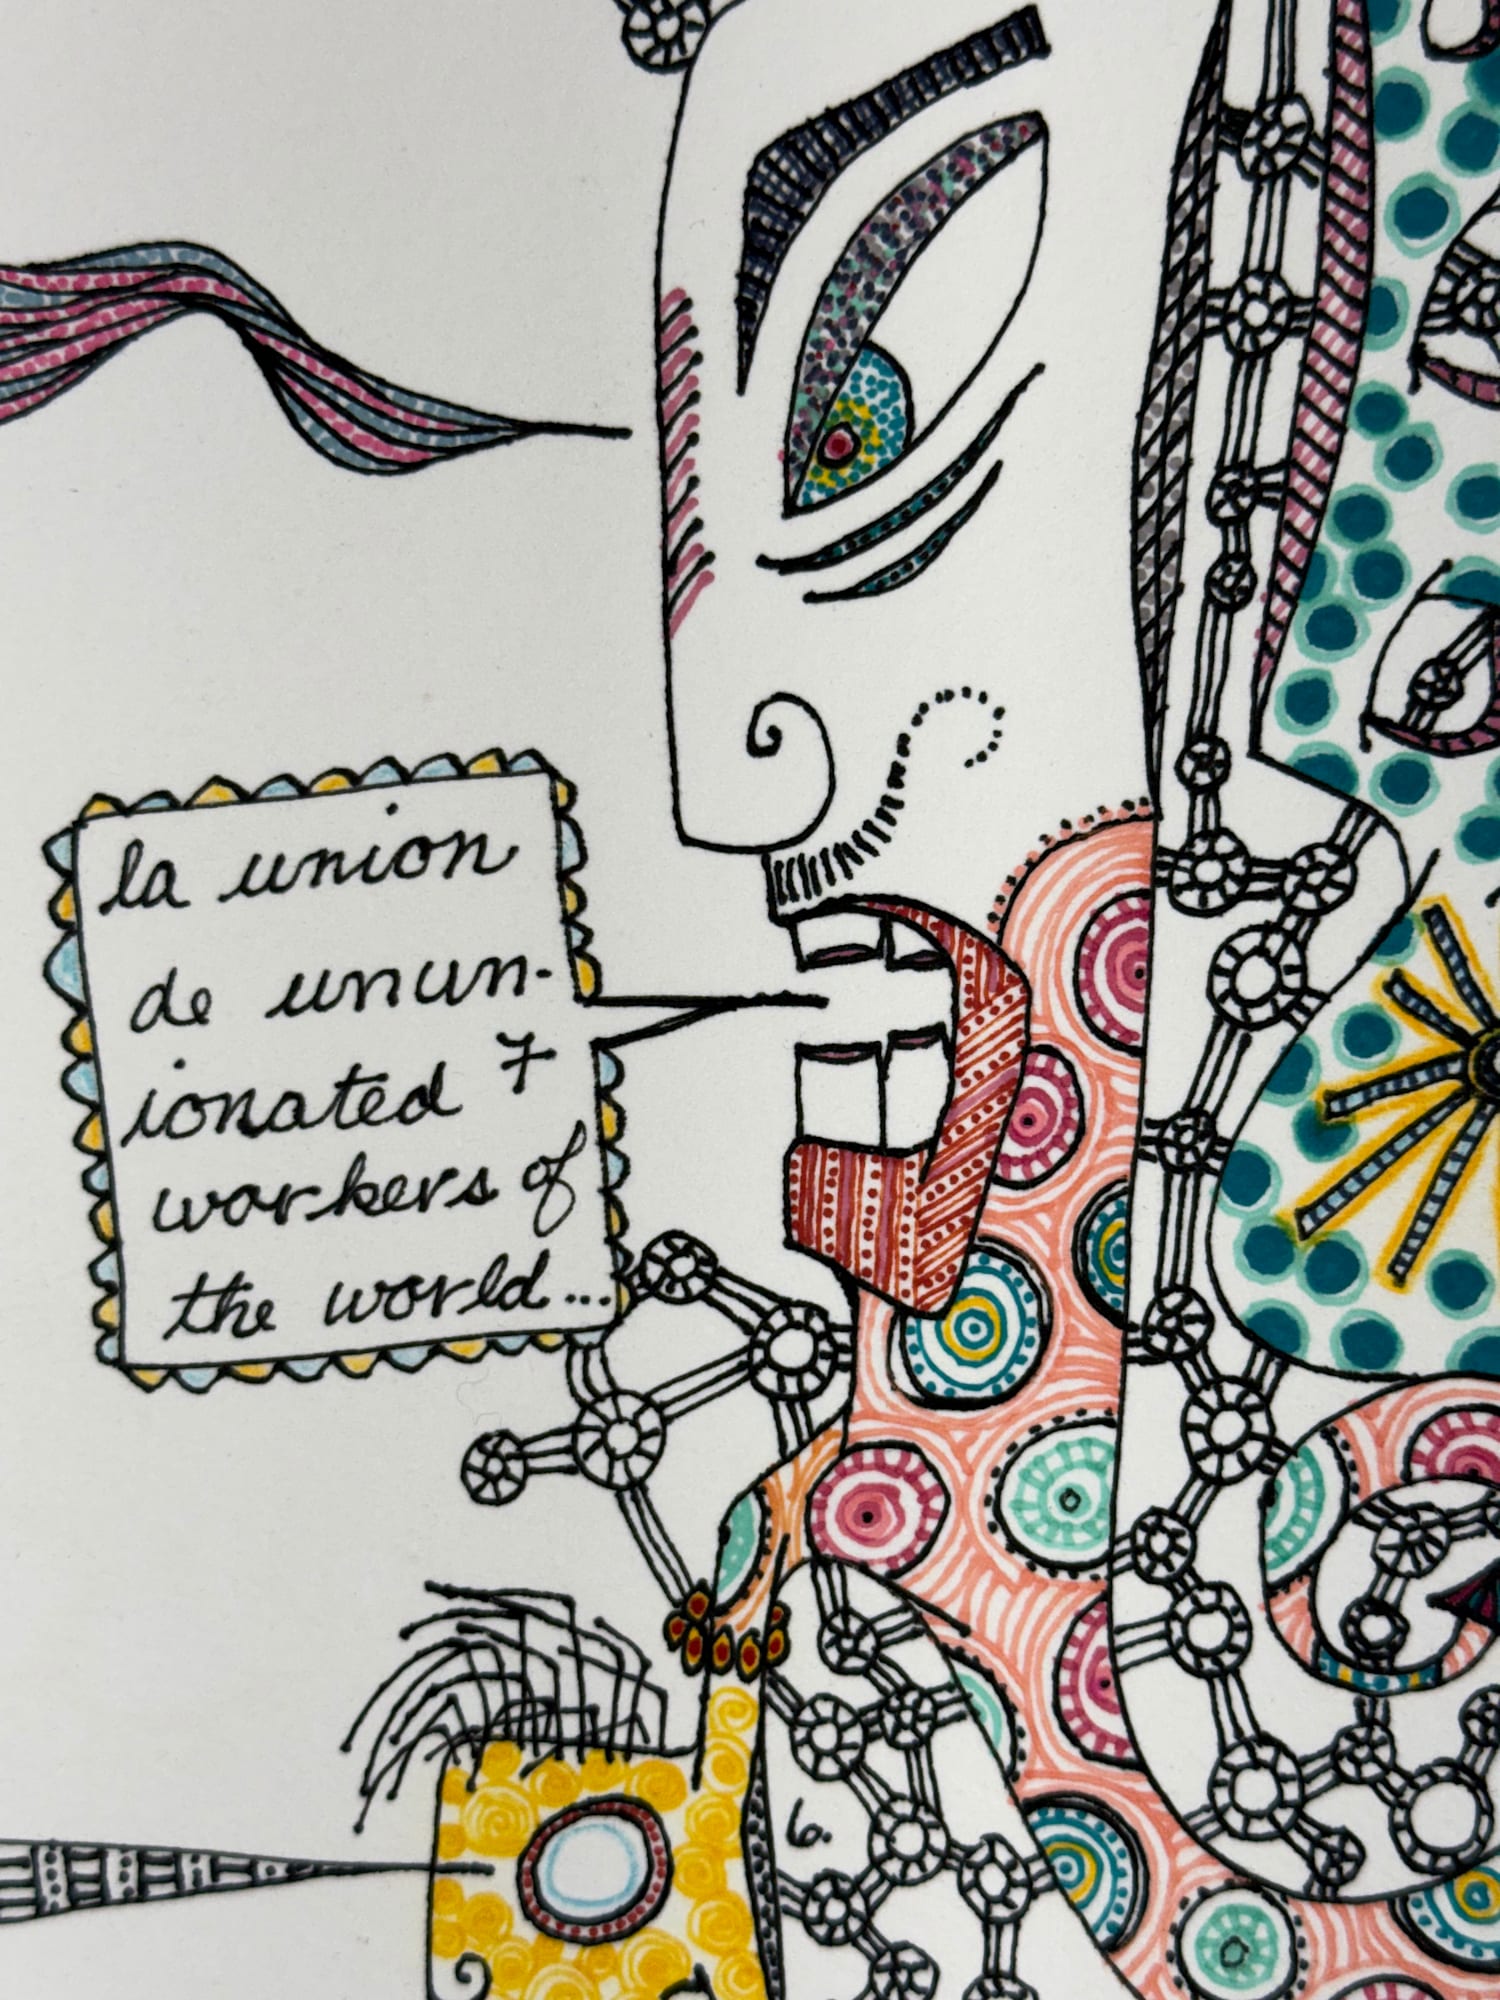 la union
de unun-
ionated 7
workers of
the world...
6.